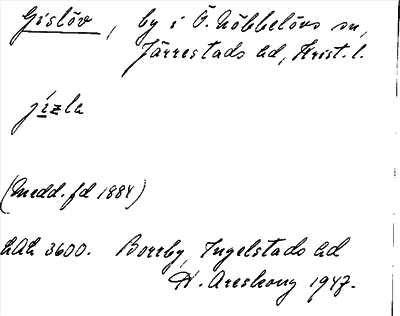 Gislöv, by i Ö. Nöbbelövs sn,
Järrestads hd, Krist. l.
jízla
(Medd. fd 1884)
LAL 3600. Borrby, Ingelstads hd
H. Areskoug 1947.